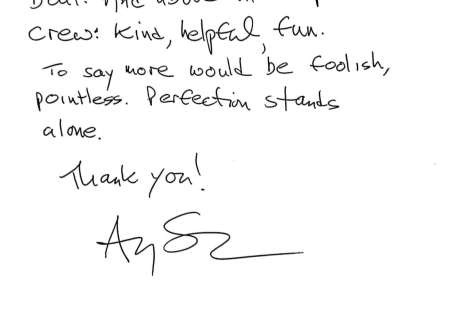 crew: Kind, helpful, fun.
To say more would be foolish,
pointless. Perfection stands
alone.
Thank you!